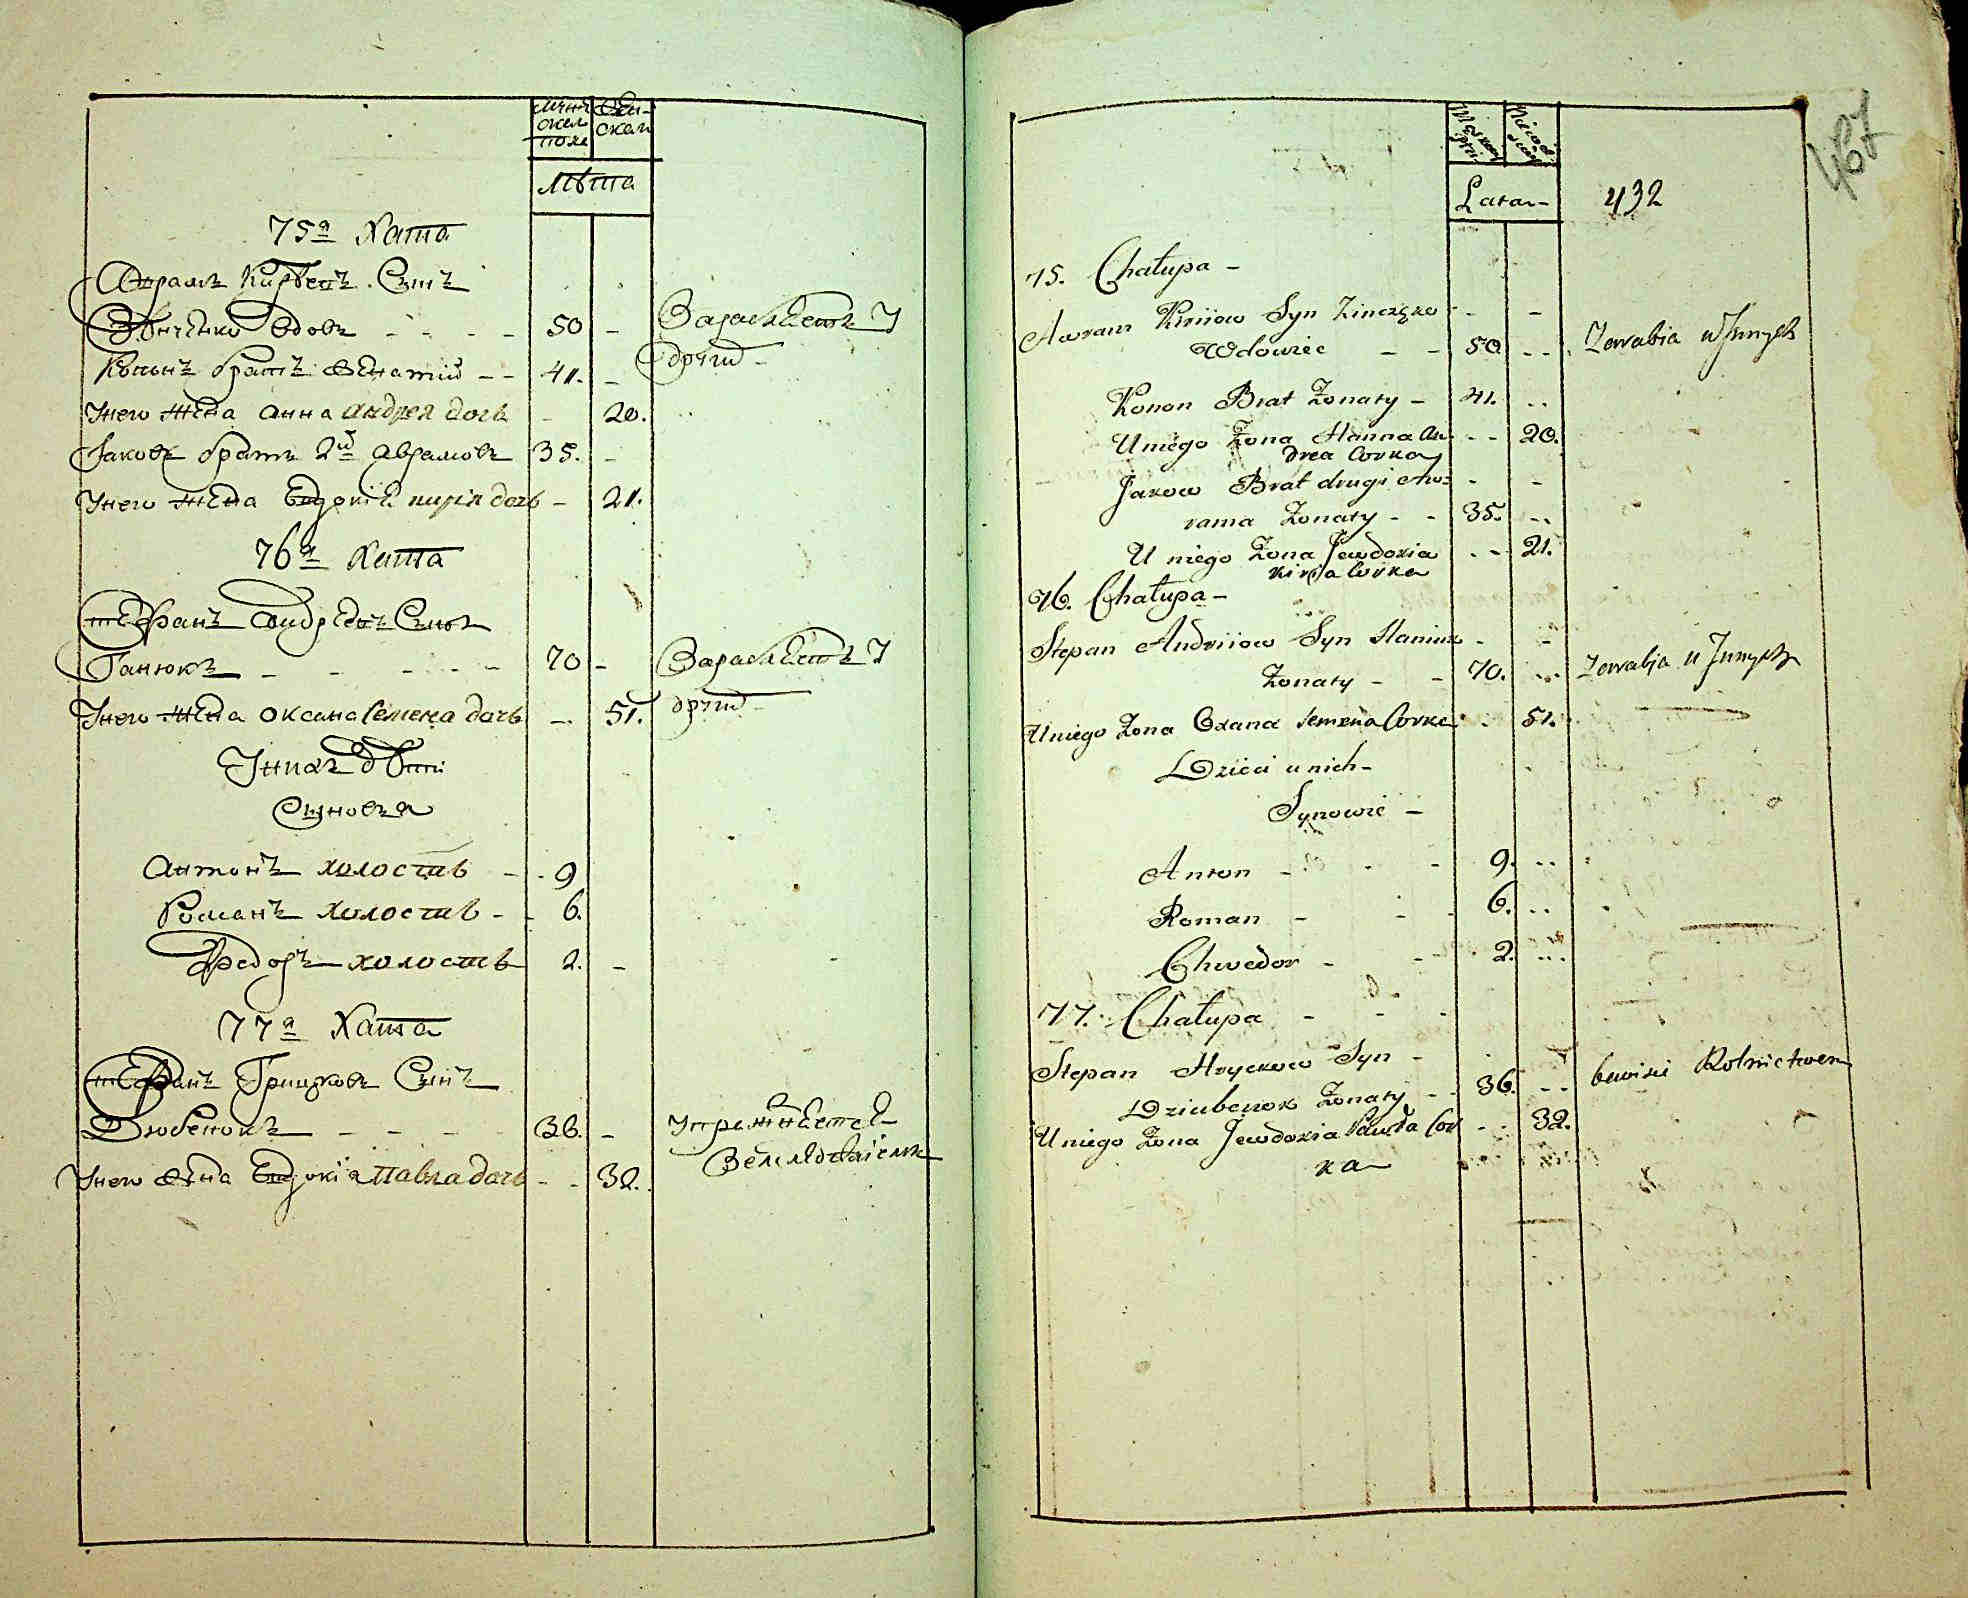 Лѣта
75я Хата
Аврамъ Кирѣевъ Сынъ
Зѣнченко вдовъ - - - - 50 -
Зараблѣетъ У
другихъ -
Кононъ братъ женатий - - 41. -
Унего жена анна андрея дочь - 20.
Яковъ братъ 2й аврамовъ 35. -
Унего жена Евдокіе кирія дочь - 21.
76я Хата
Стефанъ андреевъ Сынъ
Ганюкъ - - - - - 70 -
Зараблѣетъ У
другихъ -
Унего жена оксана Семена дочь - 51.
Унихъ дѣти
Сыновья
антонъ холостъ - - 9
Романъ холостъ - - 6.
Федоръ холостъ 2. -
77я Хата
Стефанъ Грицковъ Сынъ
Дзюбенокъ - - - - 36. -
Упражняется
Земледѣліемъ
Унего жена Евдокія Павла дочь - - 32.
467
432
Lata -
75. Chałupa -
Awram Kiriiow Syn Zinczęko - -
Wdowiec - - 50 - -
Zarrabia u Innych
Konon Brat Żonaty - 41. - -
U niego Żona Hanna An- - - 20.
drea Corka
Jakow Brat drugi Aw= - -
rama Żonaty - - 35. - -
U niego Żona Jewdokia - - 21.
Kirija Corka
76. Chałupa -
Stepan Andriiow Syn Haniuk - -
Żonaty - - 70. - -
Zarrabja u Innych
U niego Żona Oxana Semena Corka - 51.
Dzieci u nich -
Synowie -
Anton - - - 9. - -
Roman - - - 6. - -
Chwedor - - - 2. - -
77. Chałupa - - -
Stepan Hryckow Syn -
Dziubenok Żonaty - - 36. - -
bawi sie Rolnictwem
U niego Żona Jewdokia Pawła Cor - - 32.
ka